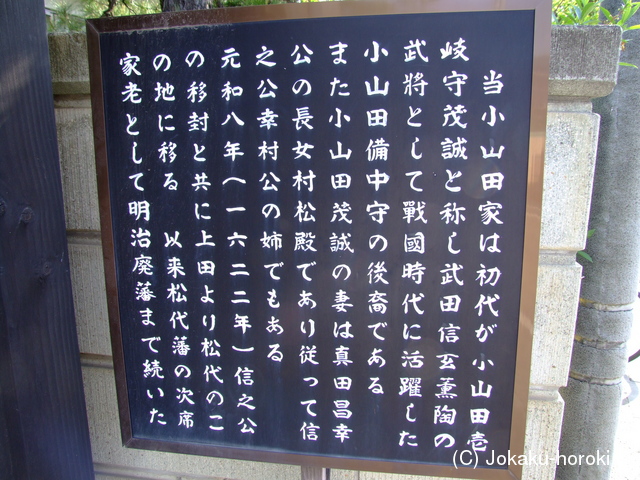 当小山田家は初代が小山田壱
岐守茂誠と称し武田信玄薫陶の
武將として戰國時代に活躍した
小山田備中守の後裔である
また小山田茂誠の妻は真田昌幸
公の長女村松殿であり従って信
之公幸村公の姉でもある
元和八年(一六二二年)信之公
の移封と共に上田より松代のこ
の地に移る 以来松代藩の次席
家老として明治廃藩まで続いた
(C) Jokaku-noroki